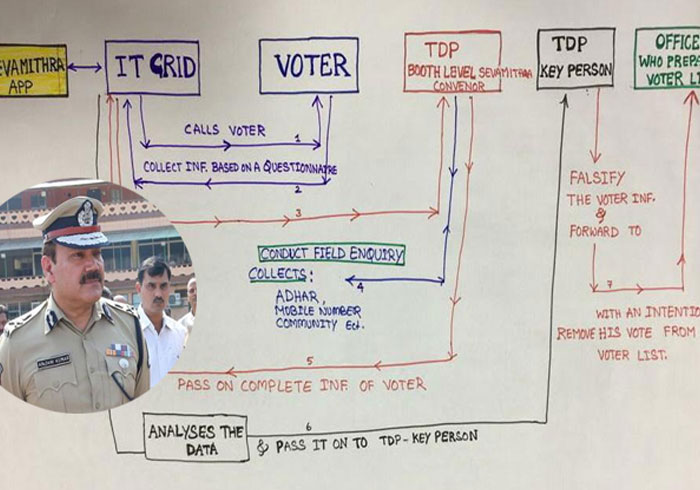 SEVAMITHRA
APP
IT GRID
VOTER
TDP
BOOTH LEVEL SEVAMITHRA
CONVENOR
TDP
KEY PERSON
OFFICE
WHO PREPA
VOTER LI
CALLS VOTER
1
COLLECT INF. BASED ON A QUESTIONNAIRE
2
3
FALSIFY
THE VOTER INF.
&
FORWARD TO
CONDUCT FIELD ENQUIRY
COLLECTS:
4
ADHAR,
MOBILE NUMBER
COMMUNITY Ect.
7
WITH AN INTENTIO
REMOVE HIS VOTE FROM
VOTER LIST.
5
PASS ON COMPLETE INF. OF VOTER
6
ANALYSES THE
DATA
& PASS IT ON TO TDP-KEY PERSON